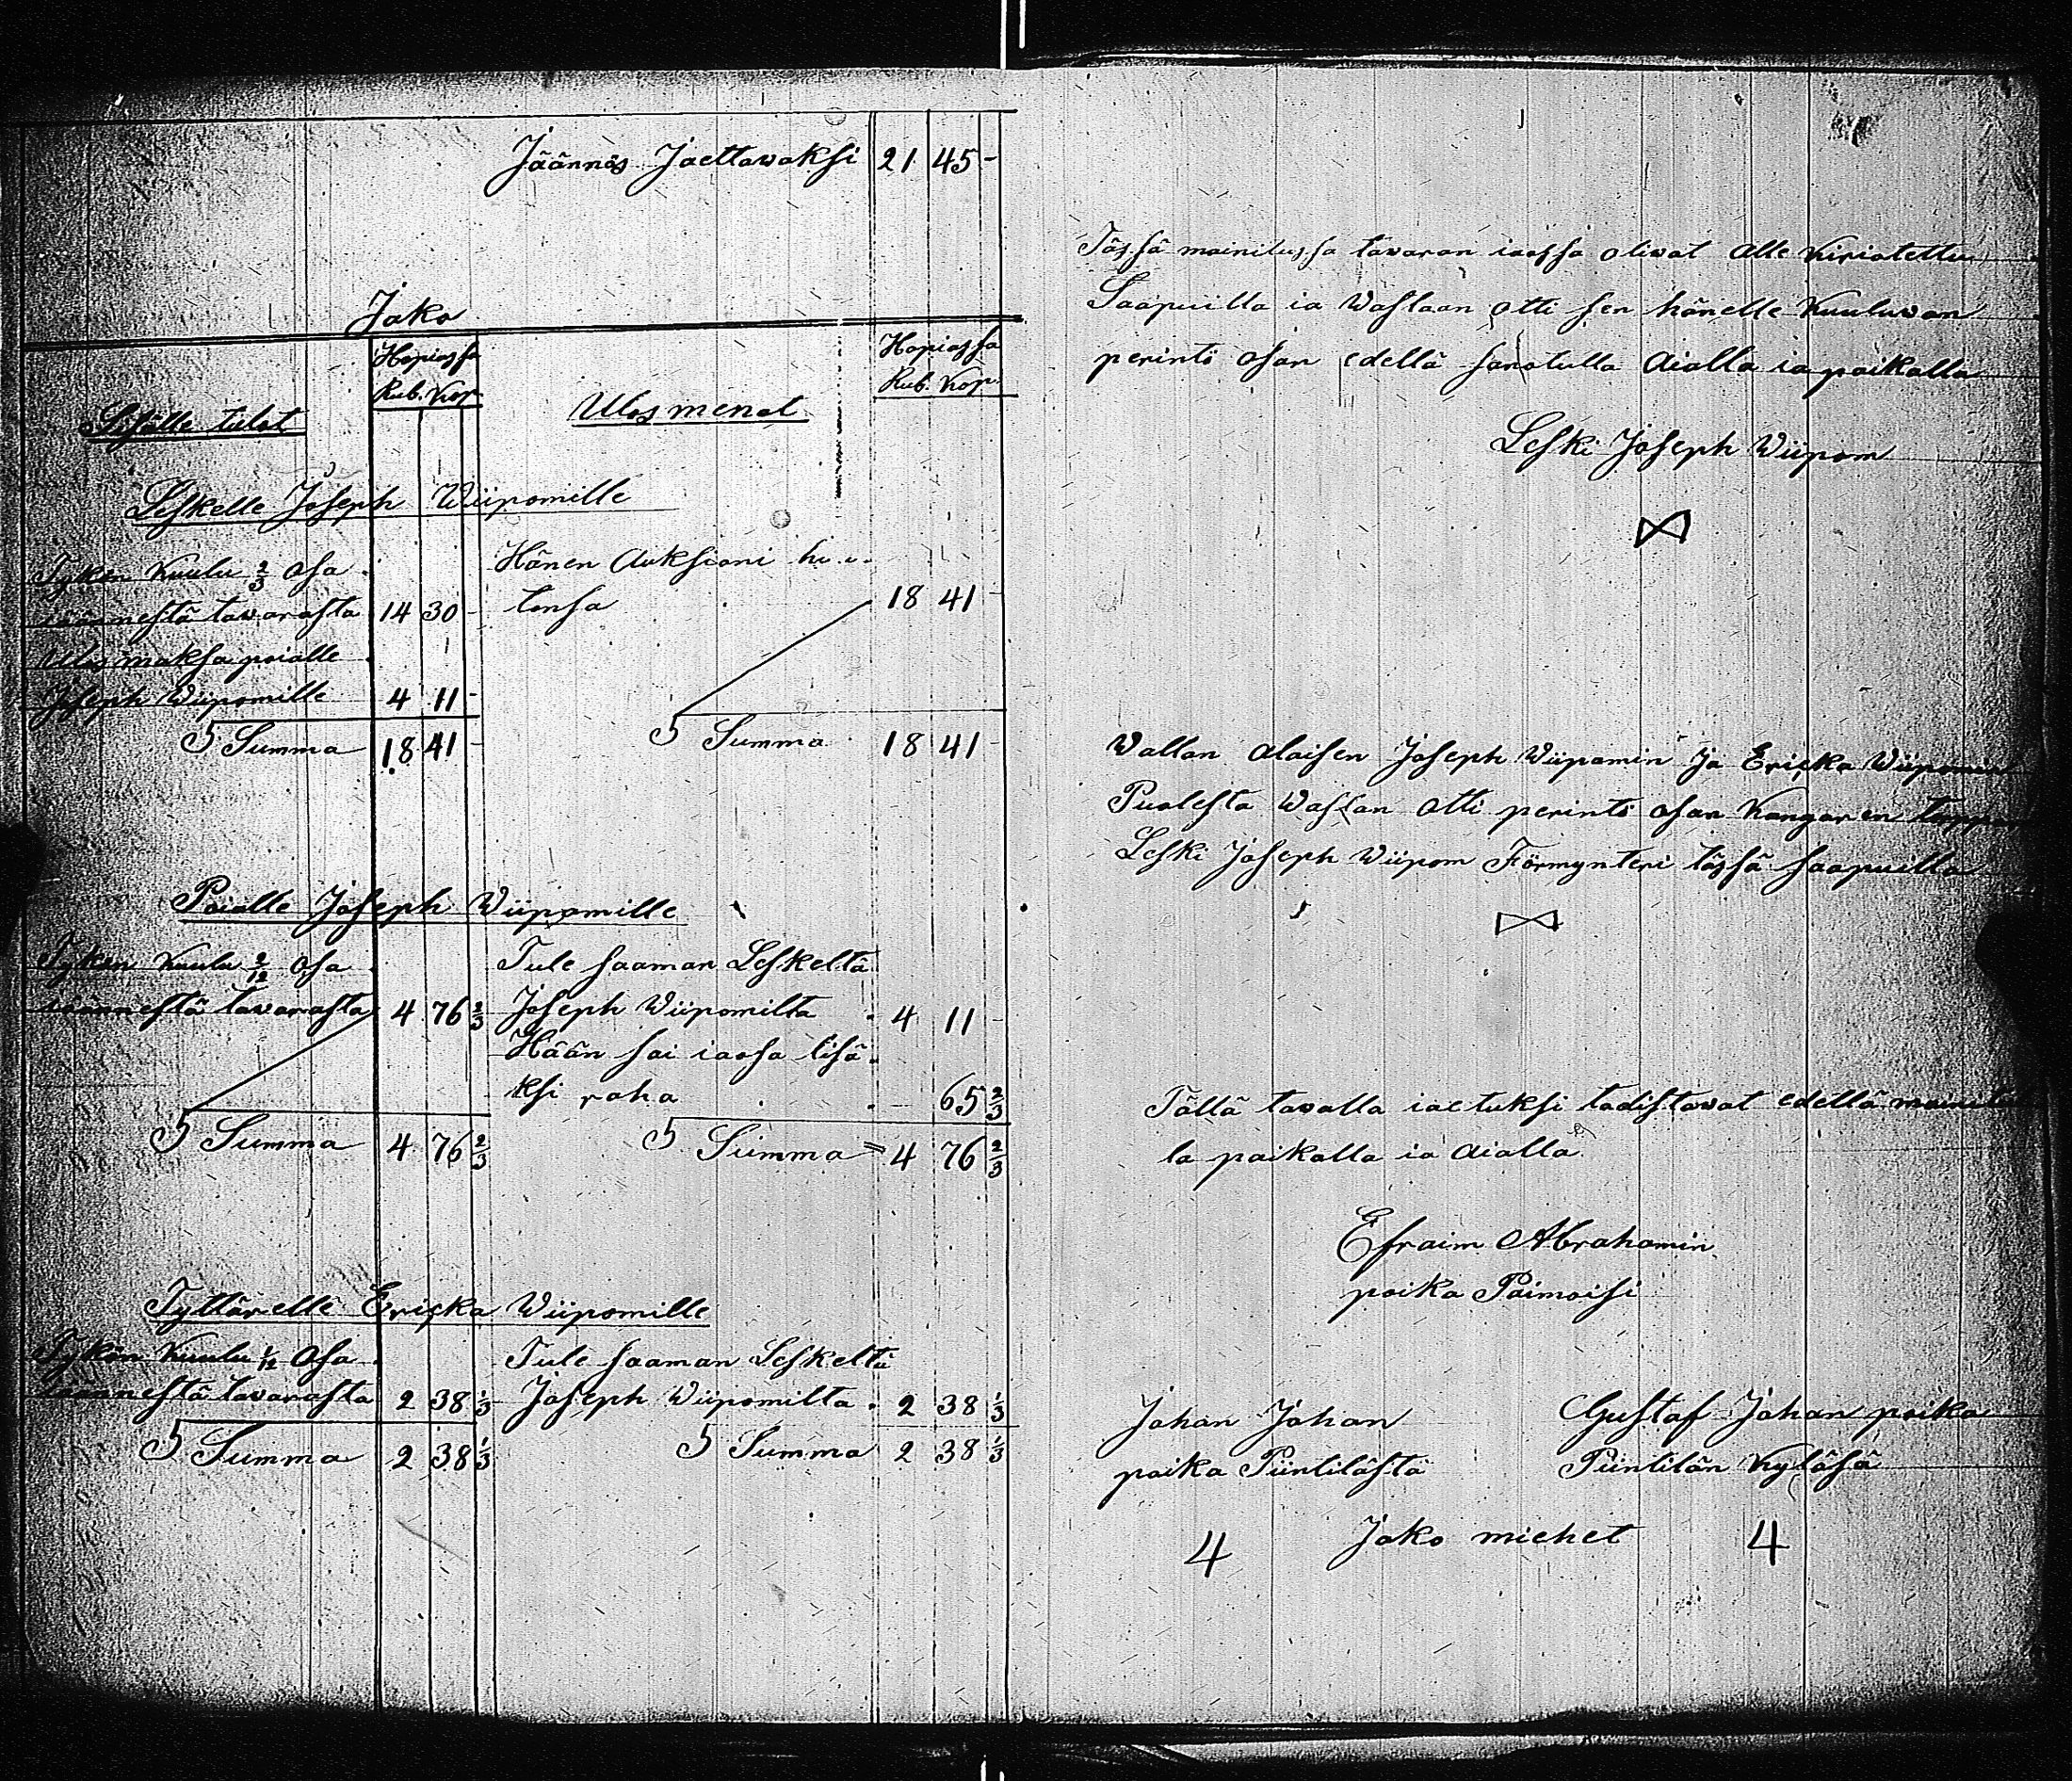 Jäännös Jaettawaksi 21 45 -
Jako
Sisälle tulot
Hopiassa
Rub. Kop.
Ulos menot
Hopiassa
Rub. Kop.
Leskelle Joseph Wiipomille
Tykön Kuulu 2/3 Osa
jäännestä tawarasta 14 30 -
Ulos maksa poialle
Joseph Wiipomille 4 11 -
Summa 18 41 -
Hänen Auksioni hu
tonsa 18 41 -
Summa 18 41 -
Poialle Joseph Wiipomille
Tykön Kuulu 2/12 Osa
jäännestä tawarasta 4 76 2/3
Summa 4 76 2/3
Tule saaman Leskeltä
Joseph Wiipomilta 4 11 -
Hään sai iaosa lisä
ksi raha - 65 2/3
Summa 4 76 2/3
Tyttärelle Ericka Wiipomille
Tykön Kuulu 1/12 Osa
jäännestä tawarasta 2 38 1/3
Summa 2 38 1/3
Tule saaman Leskeltä
Joseph Wiipomilta 2 38 1/3
Summa 2 38 1/3
Tässä mainitussa tawaran iaossa oliwat alle kiriotettu
Saapuilla ia Wastaan otti sen hänelle Kuuluwan
perintö osan edellä sanotulla aialla ia paikalla
Leski Joseph Wiipom
Wallan alaisen Joseph Wiipomin Ja Ericka Wiipomin
Puolesta Wastan otti perintö osan Kangaren
Leski Joseph Wiipom Förmynteri tässä saapuilla
Tällä tawalla iaetuksi todistawat edellä mainitu
la paikalla ia aialla
Efraim Abrahamin
poika Paimoisi
Johan Johan
poika Püntilästä
Gustaf Johan poika
Püntilän Kylässä
4 Jako miehet 4